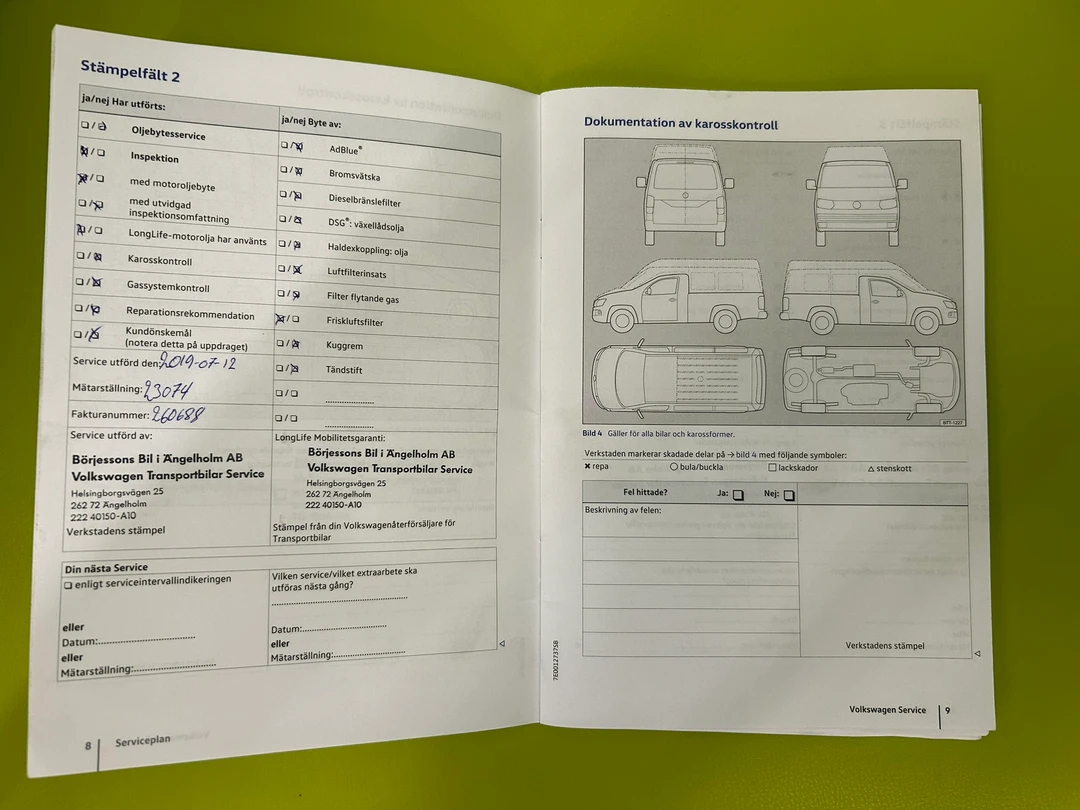 Stämpelfält 2
ja/nej Har utförts:
☐ / ☒ Oljebytesservice
☒ / ☐ Inspektion
☒ / ☐ med motoroljebyte
☐ / ☒ med utvidgad
inspektionsomfattning
☒ / ☐ LongLife-motorolja har använts
☐ / ☒ Karosskontroll
☐ / ☒ Gassystemkontroll
☐ / ☒ Reparationsrekommendation
☐ / ☒ Kundönskemål
(notera detta på uppdraget)
ja/nej Byte av:
☐ / ☒ AdBlue®
☐ / ☒ Bromsvätska
☐ / ☒ Dieselbränslefilter
☐ / ☒ DSG®: växellådsolja
☐ / ☒ Haldexkoppling: olja
☐ / ☒ Luftfilterinsats
☐ / ☒ Filter flytande gas
☒ / ☐ Friskluftsfilter
☐ / ☒ Kuggrem
☐ / ☒ Tändstift
☐ / ☐ ......................
☐ / ☐ ......................
Service utförd den: 2019-07-12
Mätarställning: 23074
Fakturanummer: 260688
Service utförd av:
Börjessons Bil i Ängelholm AB
Volkswagen Transportbilar Service
Helsingborgsvägen 25
262 72 Ängelholm
222 40150-A10
Verkstadens stämpel
LongLife Mobilitetsgaranti:
Börjessons Bil i Ängelholm AB
Volkswagen Transportbilar Service
Helsingborgsvägen 25
262 72 Ängelholm
222 40150-A10
Stämpel från din Volkswagenåterförsäljare för
Transportbilar
Din nästa Service
☐ enligt serviceintervallindikeringen
eller
Datum:..............................
eller
Mätarställning:.........................
Vilken service/vilket extraarbete ska
utföras nästa gång?
..........................................
Datum:..........................
eller
Mätarställning:.........................
8 Serviceplan
Dokumentation av karosskontroll
BTT-1227
Bild 4 Gäller för alla bilar och karossformer.
Verkstaden markerar skadade delar på → bild 4 med följande symboler:
✖ repa ○ bula/buckla ☐ lackskador △ stenskott
Fel hittade? Ja: ☐ Nej: ☐
Beskrivning av felen:
Verkstadens stämpel
7E0012737SB
Volkswagen Service 9